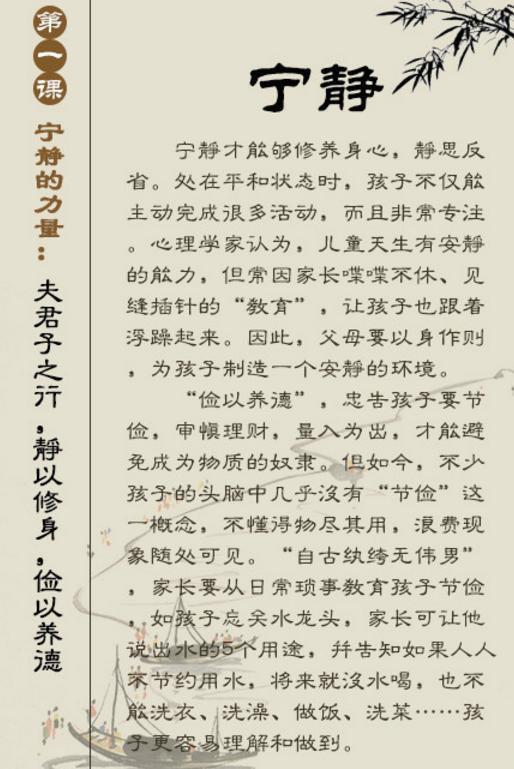 第一课
宁静的力量：
夫君子之行，静以修身，俭以养德
宁静
宁静才能够修养身心，静思反
省。处在平和状态时，孩子不仅能
主动完成很多活动，而且非常专注
。心理学家认为，儿童天生有安静
的能力，但常因家长喋喋不休、见
缝插针的“教育”，让孩子也跟着
浮躁起来。因此，父母要以身作则
，为孩子制造一个安静的环境。
“俭以养德”，忠告孩子要节
俭，审慎理财，量入为出，才能避
免成为物质的奴隶。但如今，不少
孩子的头脑中几乎没有“节俭”这
一概念，不懂得物尽其用，浪费现
象随处可见。“自古纨绔无伟男”
，家长要从日常琐事教育孩子节俭
，如孩子忘关水龙头，家长可让他
说出水的5个用途，并告知如果人人
不节约用水，将来就没水喝，也不
能洗衣、洗澡、做饭、洗菜……孩
子更容易理解和做到。